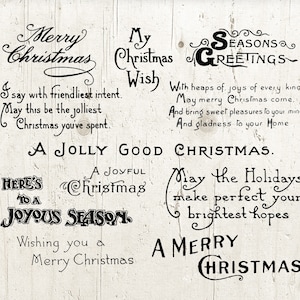 Merry
Christmas
My
Christmas
Wish
Seasons
Greetings
I say with friendliest intent.
May this be the jolliest
Christmas you've spent.
With heaps of joys of every kind
May merry Christmas come.
And bring sweet pleasures to your mind
And gladness to your Home
A JOLLY GOOD CHRISTMAS.
A JOYFUL
Christmas
HERE'S
TO A
JOYOUS SEASON.
May the Holidays
make perfect your
brightest hopes
Wishing you a
Merry Christmas
A MERRY
CHRISTMAS